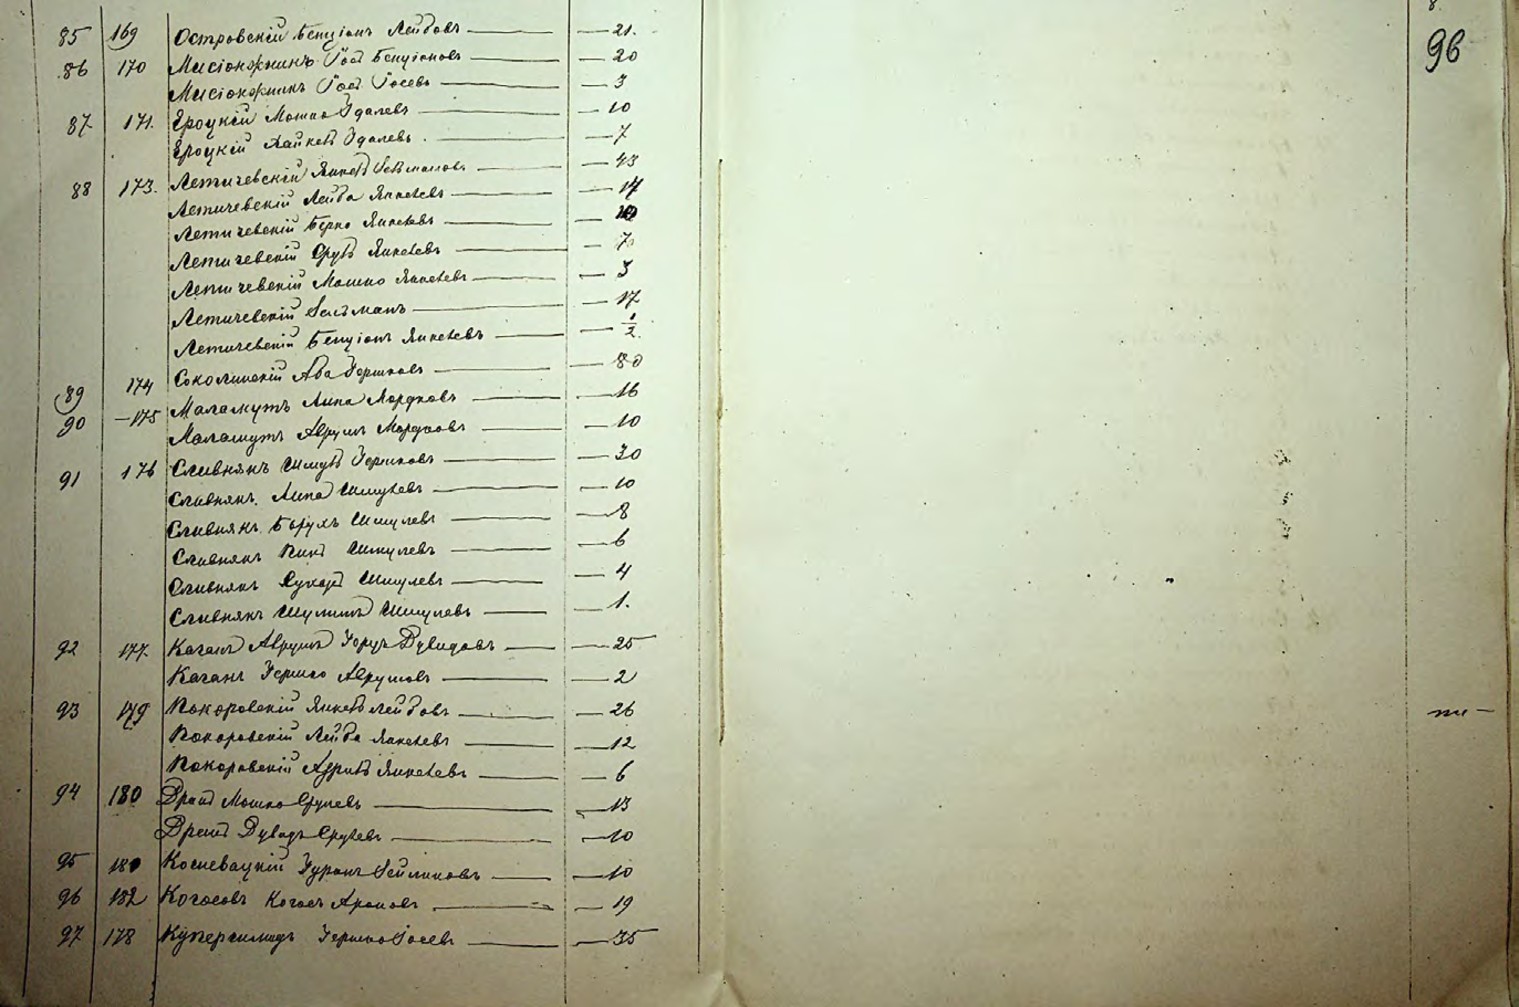 96
85 169 Островскій Бенціонъ Лейбовъ — 21.
86 170 Мисіонжникъ Іось Бенціоновъ — 20
Мисіонжникъ Іось Іосевъ — 3
87 171. Ероцкій Мошко Удалевъ — 10
Ероцкій Удалевъ — 7
88 173. Летичевскій Янкель — 43
Летичевскій Лейба Янкелевъ — 14
Летичевскій Берко Янкелевъ — 10
Летичевскій Сруль Янкелевъ — 7
Летичевскій Мошко Янкелевъ — 3
Летичевскій Зельманъ — 17
Летичевскій Бенціонъ Янкелевъ — 1/2
89 174 Соколинскій Аба Гершковъ — 80
90 — 175 Маламутъ Липа Мордковъ — 16
Маламутъ Аврумъ Мордковъ — 10
91 176 Сливнякъ Шмуль Гершковъ — 30
Сливнякъ Липа Шмулевъ — 10
Сливнякъ Борухъ Шмулевъ — 8
Сливнякъ Шмулевъ — 6
Сливнякъ Сухоръ Шмулевъ — 4
Сливнякъ Шулимъ Шмулевъ — 1.
92 177 Каганъ Аврумъ Дувидовъ — 25
Каганъ Гершко Аврумовъ — 2
93 179 Покоровскій Янкель Лейбовъ — 26
Покоровскій Лейба Янкелевъ — 12
Покоровскій Янкелевъ — 6
94 180 Мошко Срулевъ — 13
Дувидъ Срулевъ — 10
95 180 Косневацкій Зейликовъ — 10
96 182 Когосовъ Когосъ Ароновъ — 19
97 178 Купершмидъ Гершко Іосевъ — 35